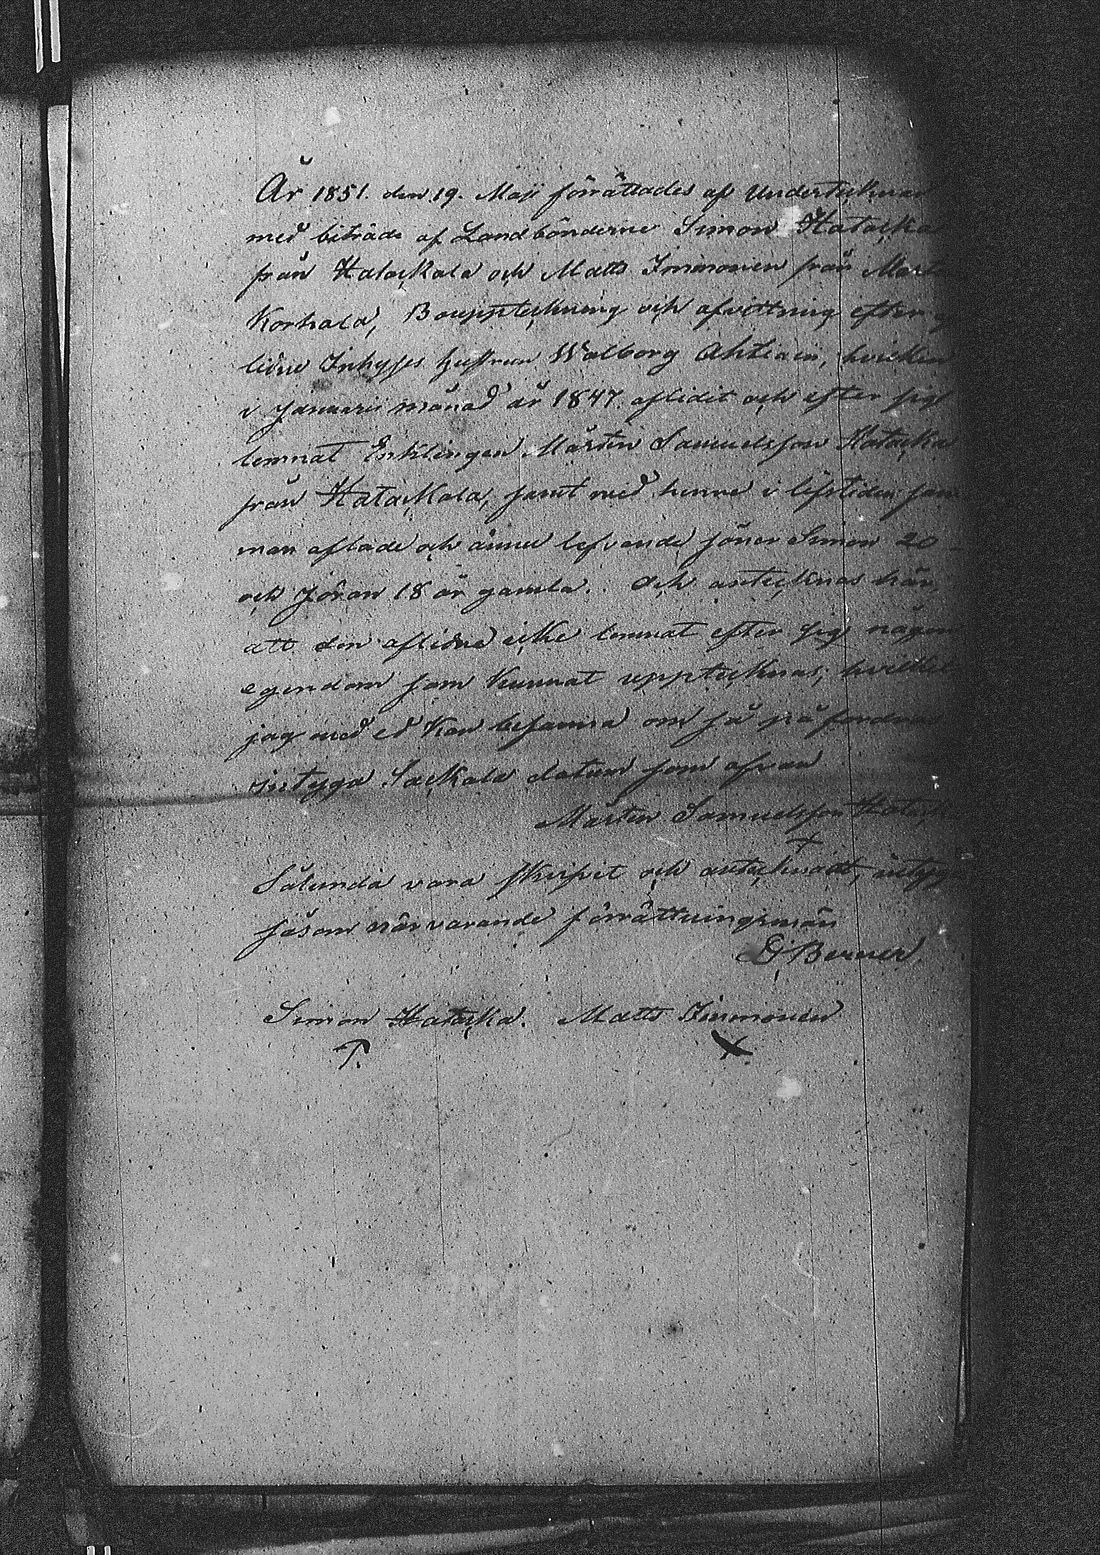 År 1851. den 19. Maji förrättades af Undertecknad
med biträde af Landbönderne Simon Hatacka
från Hatackala och Matts Immonen från
Korhala, Bouppteckning och afvittring efter
lidne Inhyses hustrun Walborg Ahtiain, hvilken
i Januarii månad år 1847. aflidit och efter sig
lemnat Enklingen Mårten Samuelsson Hatacka
från Hatackala, samt med henne i lifstiden sam
man aflade och ännu lefvande söner Simon 20 –
och Jöran 18 år gamla. Och antecknas här
att den aflidne icke lemnat efter sig någon
egendom som kunnat upptecknas; hvilket
jag med ed kan besanna om så påfordras
intyga Sackola datum som ofvan
Mårten Samuelsson Hatacka
Sålunda vara skrifvit och antecknadt, intyga
såsom närvarande förrättningsmän
D. Berner
Simon Hatacka. Matts Immonen